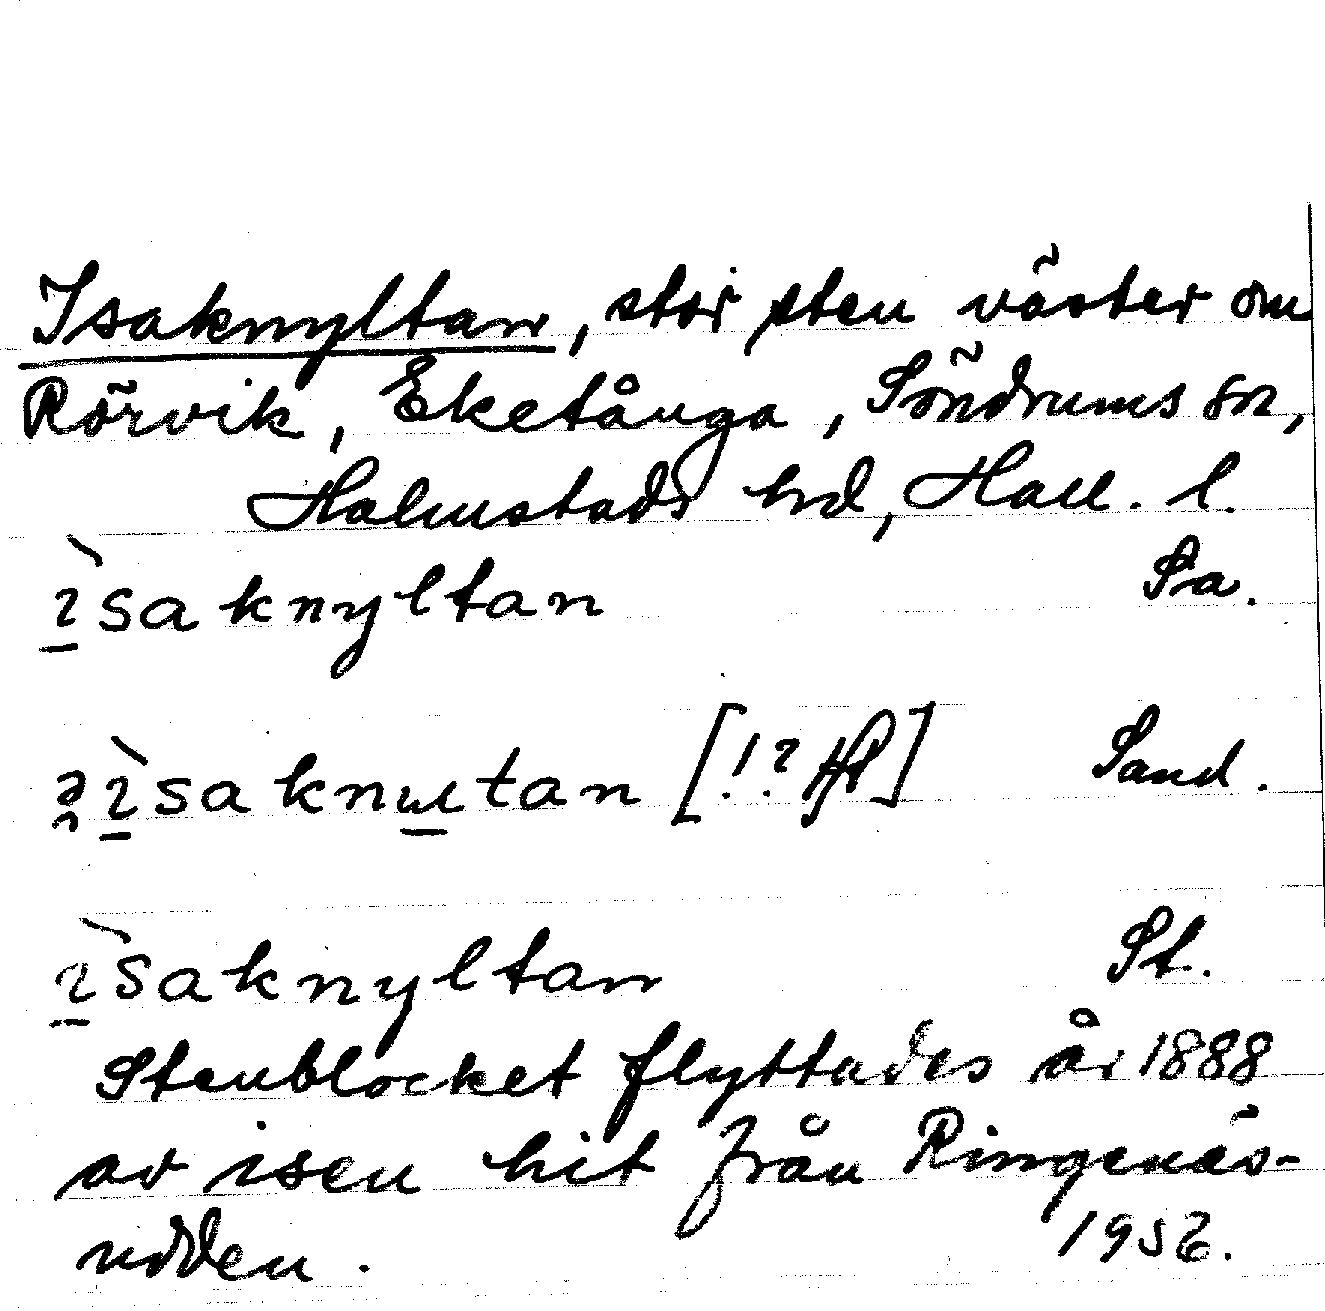 Isaknyltan, stor sten väster om
Rörvik, Eketånga, Söndrums sn,
Halmstads hd, Hall. l.
ìsaknyltan Sa.
ìsakn tan [!? ] Sand.
ìsaknyltan St.
Stenblocket flyttades år 1888
av isen hit från Ringenäs-
udden. 1952.